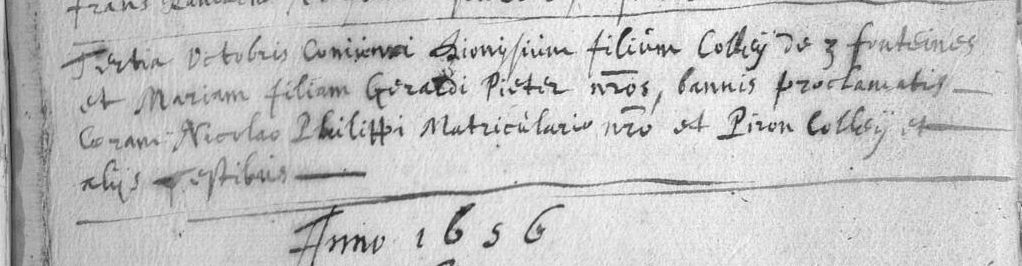 Tertia Octobris Coniunxi Dionysium filium Colleÿ de 3 fonteines
et Mariam filiam Geraldi Pieter nr̄os, bannis proclamatis
Coram Nicolao Philippi Matriculario nr̄o et Piron Colleÿ et
alijs Testibus
Anno 1656